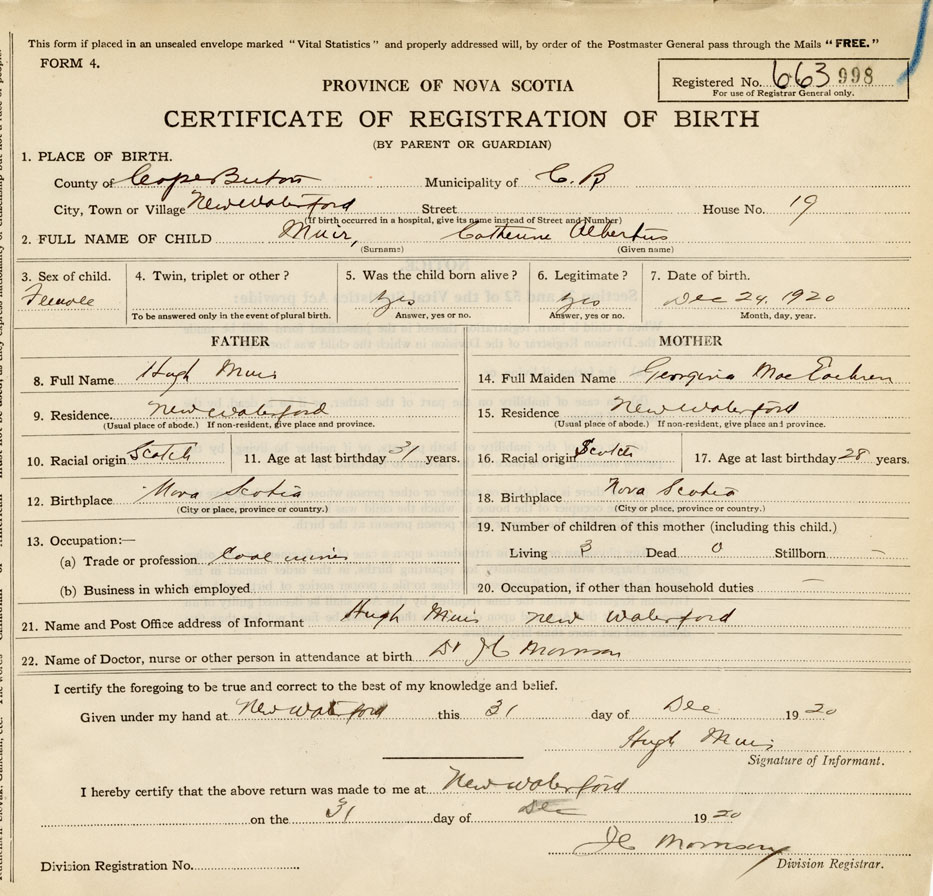 This form if placed in an unsealed envelope marked "Vital Statistics" and properly addressed will, by order of the Postmaster General pass through the Mails "FREE."
FORM 4.
Registered No. 663 998
For use of Registrar General only.
PROVINCE OF NOVA SCOTIA
CERTIFICATE OF REGISTRATION OF BIRTH
(BY PARENT OR GUARDIAN)
1. PLACE OF BIRTH.
County of Cape Breton Municipality of C. B
City, Town or Village New Waterford Street House No. 19
(If birth occurred in a hospital, give its name instead of Street and Number)
2. FULL NAME OF CHILD Muir, Catherine Albertus
(Surname) (Given name)
3. Sex of child. 4. Twin, triplet or other? 5. Was the child born alive? 6. Legitimate? 7. Date of birth.
Female yes yes Dec 24, 1920
To be answered only in the event of plural birth. Answer, yes or no. Answer, yes or no. Month, day, year.
FATHER MOTHER
8. Full Name Hugh Muir 14. Full Maiden Name Georgina MacEachren
9. Residence. New Waterford 15. Residence New Waterford
(Usual place of abode.) If non-resident, give place and province. (Usual place of abode.) If non-resident, give place and province.
10. Racial origin Scotch 11. Age at last birthday 31 years. 16. Racial origin Scotch 17. Age at last birthday 28 years.
12. Birthplace Nova Scotia 18. Birthplace Nova Scotia
(City or place, province or country.) (City or place, province or country.)
19. Number of children of this mother (including this child.)
13. Occupation:—
(a) Trade or profession Coal miner Living 3 Dead 0 Stillborn —
(b) Business in which employed 20. Occupation, if other than household duties —
21. Name and Post Office address of Informant Hugh Muir New Waterford
22. Name of Doctor, nurse or other person in attendance at birth Dr J C Morrison
I certify the foregoing to be true and correct to the best of my knowledge and belief.
Given under my hand at New Waterford this 31 day of Dec 1920
Hugh Muir
Signature of Informant.
I hereby certify that the above return was made to me at New Waterford
on the 31 day of Dec 1920
J C Morrison
Division Registration No. Division Registrar.